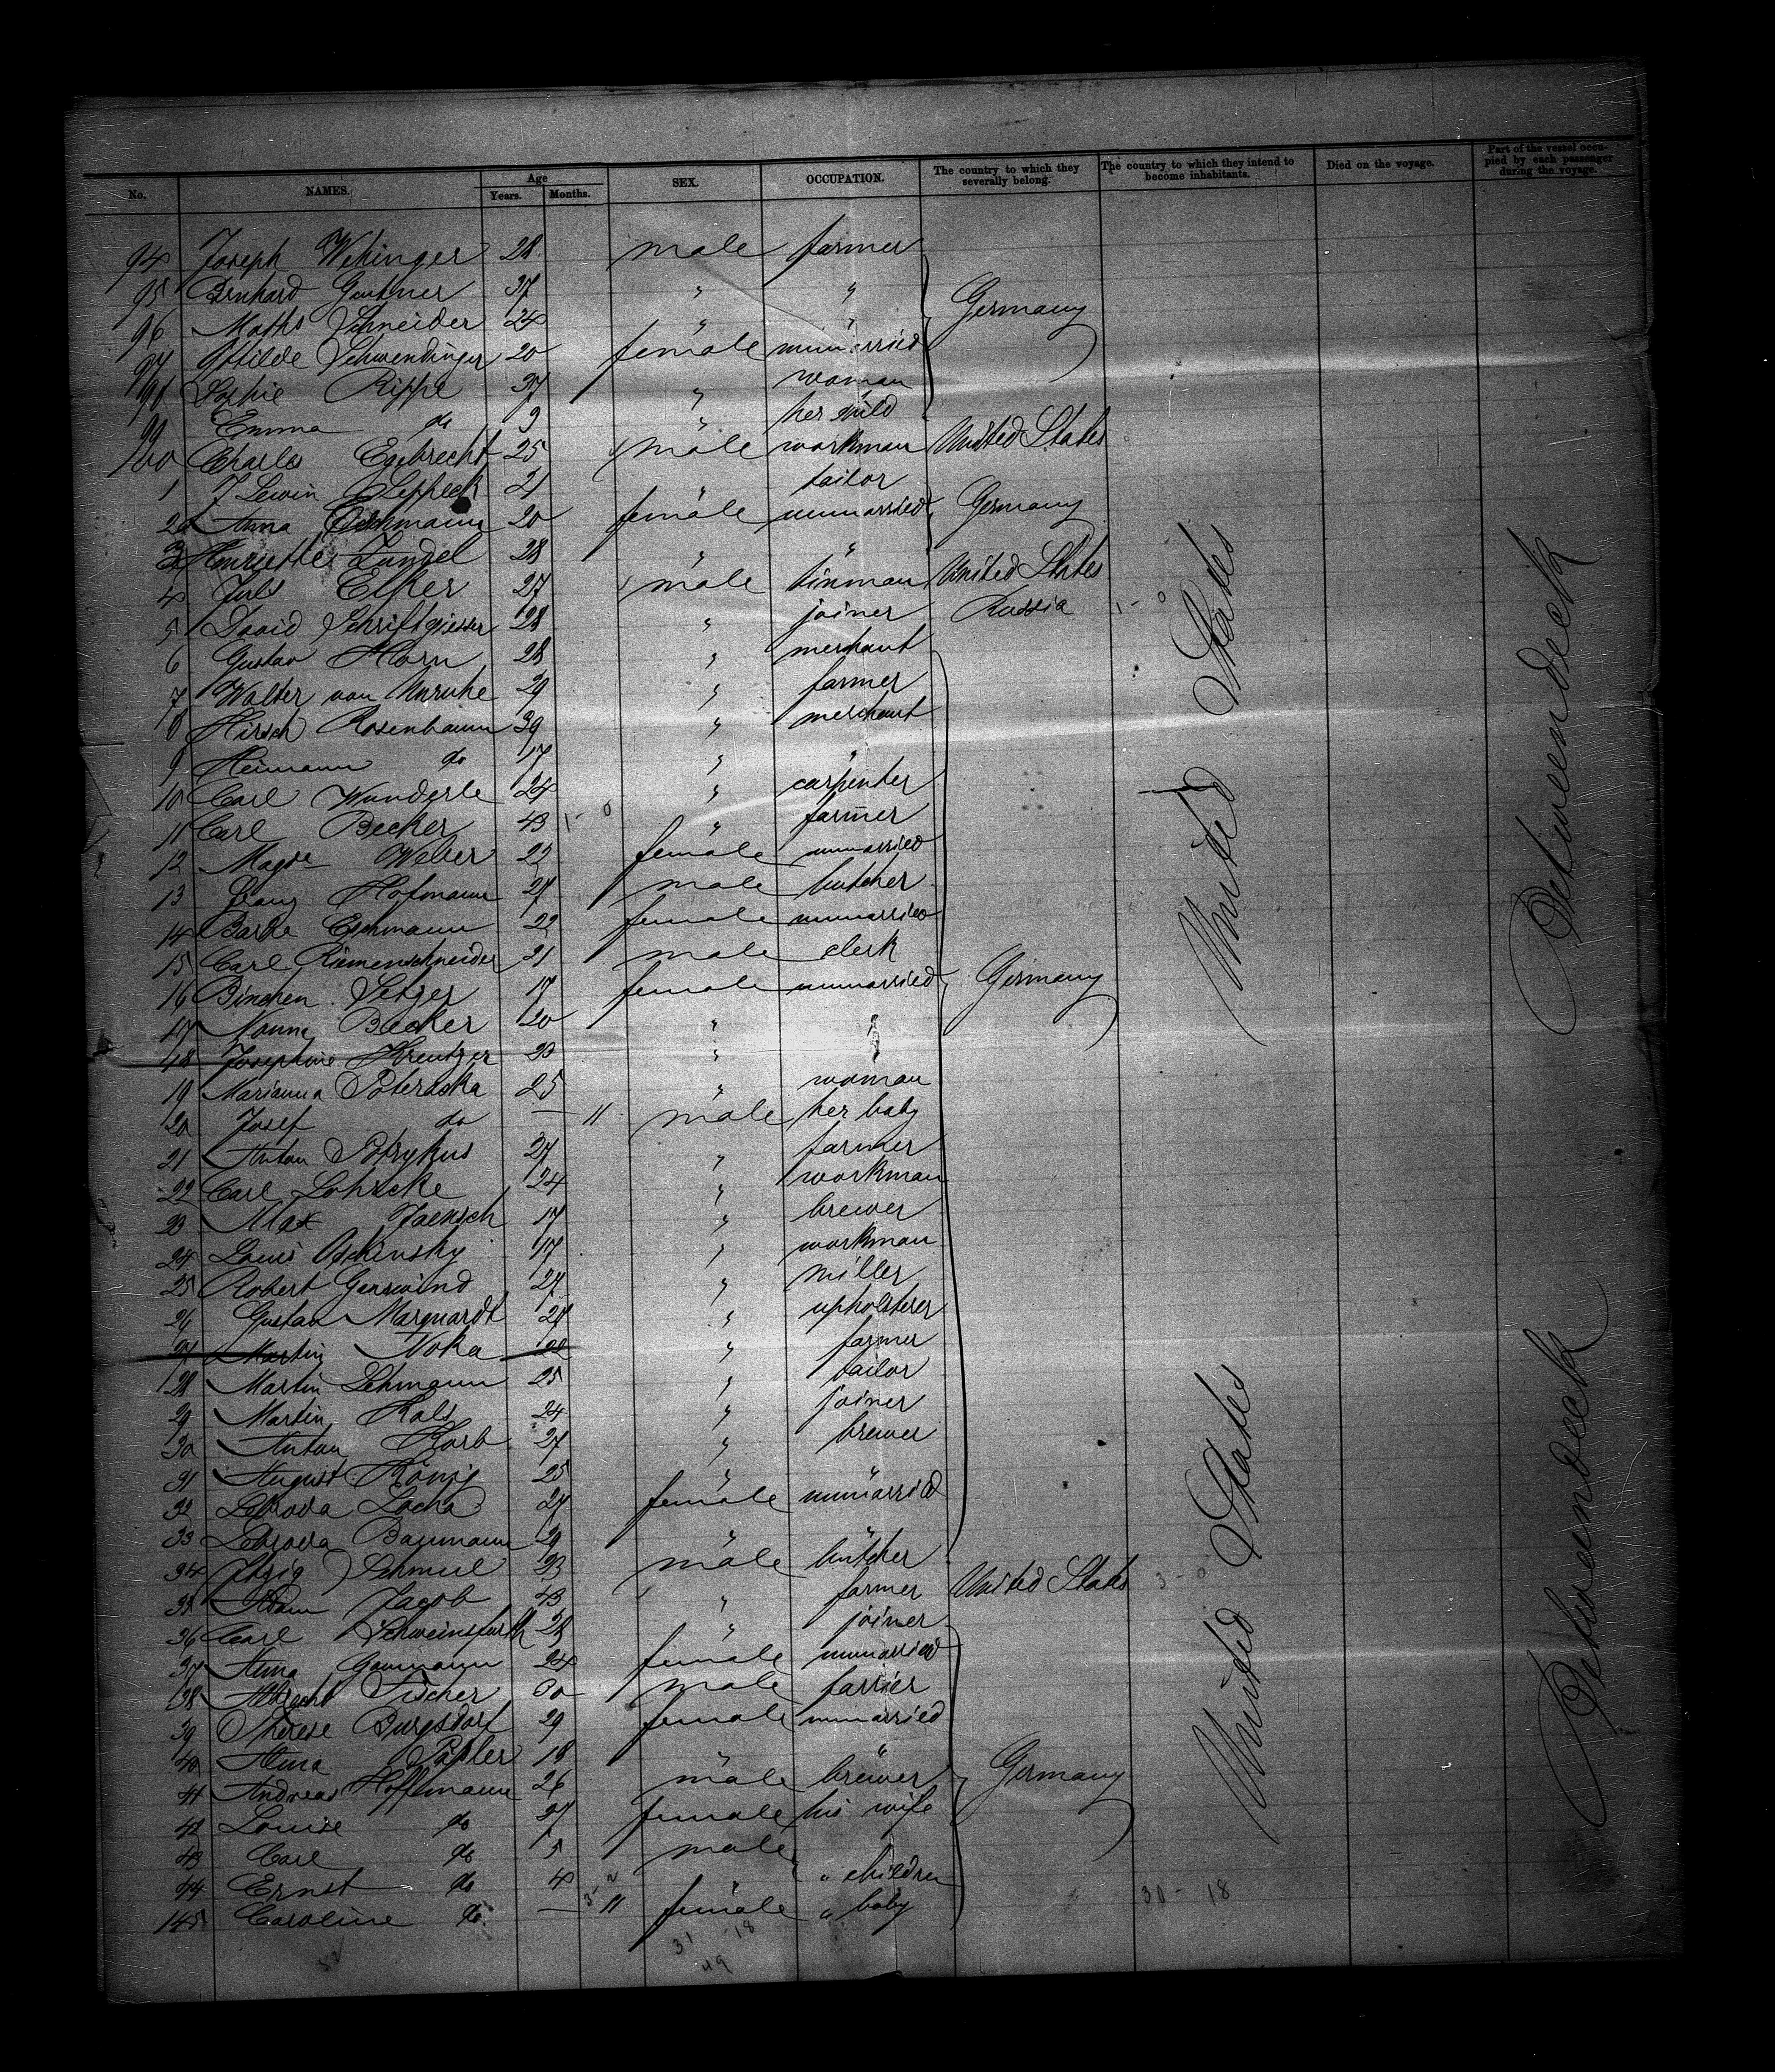 No. NAMES. Age Years. Months. SEX. OCCUPATION. The country to which they severally belong. The country to which they intend to become inhabitants. Died on the voyage. Part of the vessel occupied by each passenger during the voyage.
94 Joseph Wehinger 28 male farmer
95 Bernhard Gentner 37 " "
96 Maths Schneider 24 " " Germany
97 Ottilde Schwendinger 20 female unmarried
98 Sophie Rippe 37 " woman
99 Emma do 9 " her child
100 Charles Eggbrecht 25 male workman United States
1 J Lewin 21 " tailor
2 Anna 20 female unmarried Germany
3 Henriette Zundel 28 " "
4 Juls Elker 27 male tinman United States
5 David Schriftgiesser 28 " joiner Russia 1-0
6 Gustav Horn 28 " merchant
7 Walter von Unruhe 29 " farmer
8 Hirsch Rosenbaum 39 " merchant
9 Heimann do 17 " "
10 Carl Wunderle 24 " carpenter
11 Carl Becker 43 1-0 " farmer
12 Magde Weber 22 female unmarried
13 Hofmann 27 male butcher
14 Barba Eschmann 22 female unmarried
15 Carl Riemenschneider 21 male clerk
16 Binchen Setzer 17 female unmarried Germany
17 Nanny Becker 20 " "
18 Josephine Kreutzer 23 " "
19 Marianna Poteraska 25 " woman
20 Josef do — 11 male her baby
21 Anton Potrykus 27 " farmer
22 Carl Lohrcke 24 " workman
23 Max Jaensch 17 " brewer
24 Louis Oskinsky 17 " workman
25 Robert Genswind 27 " miller
26 Gustav Marquardt 27 " upholsterer
27 Martin Noka 22 " farmer
28 Martin Lehmann 25 " tailor
29 Martin Kals 24 " joiner
30 Anton Korb 27 " brewer
31 August König 25 " "
32 Locha 27 female unmarried
33 Baumann 29 " "
34 Itzig Schmul 23 male butcher
35 Adam Jacob 43 " farmer United States 3-0
36 Carl Schweinsfurth 28 " joiner
37 Anna Gaumann 24 female unmarried
38 Albrecht Fischer 30 male farrier
39 Therese Burgsdorf 29 female unmarried
40 Anna 18 " "
41 Andreas Hoffmann 26 male brewer Germany
42 Louise do 27 female his wife
43 Carl do 5 male
44 Ernst do 4 " " children
145 Caroline do — 11 female " baby
30-18
31 18
49
United States
Betweendeck
United States
Betweendeck